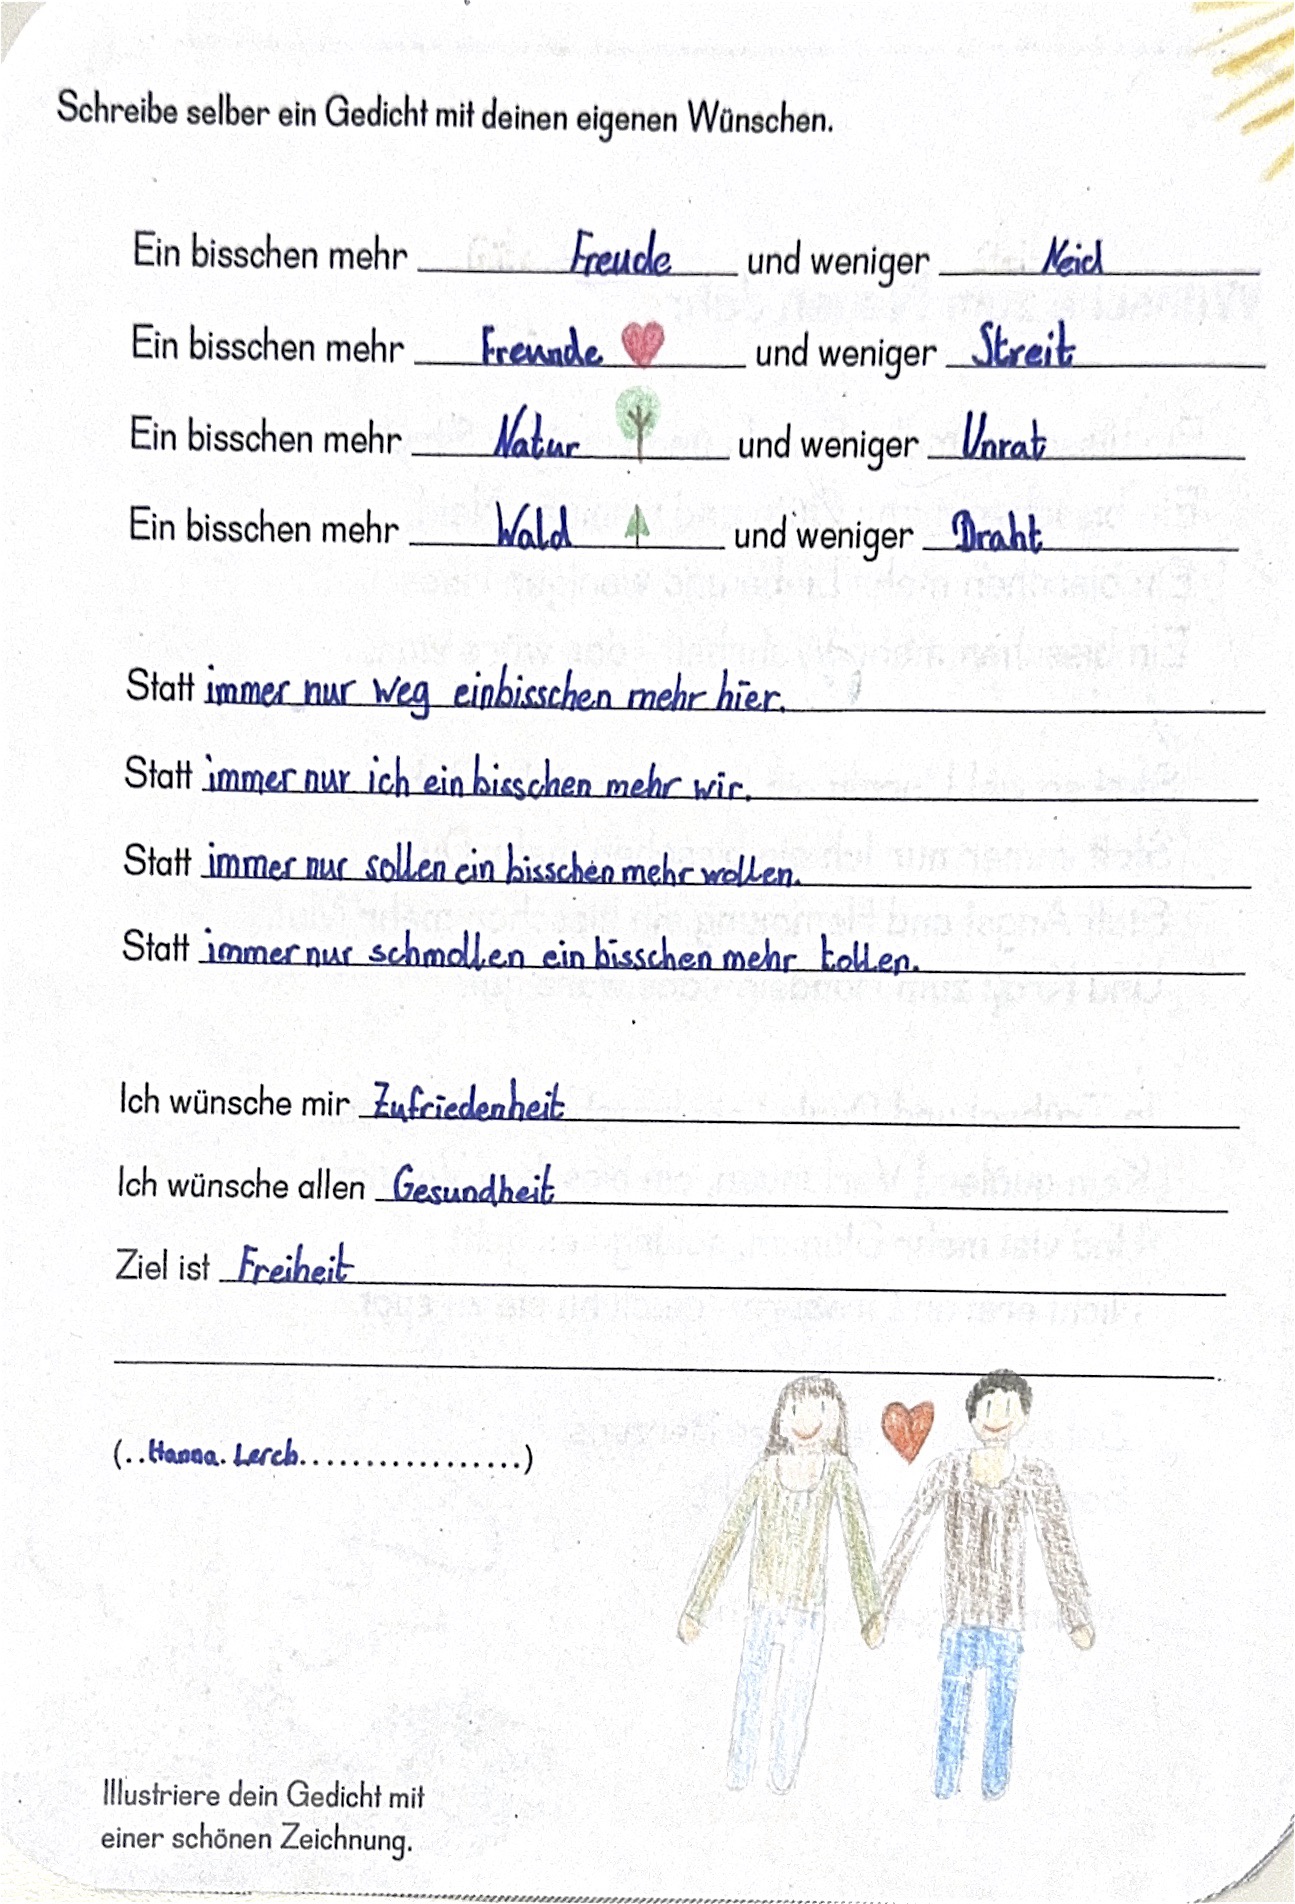 Schreibe selber ein Gedicht mit deinen eigenen Wünschen.
Ein bisschen mehr Freude und weniger Neid
Ein bisschen mehr Freunde und weniger Streit
Ein bisschen mehr Natur und weniger Unrat
Ein bisschen mehr Wald und weniger Draht
Statt immer nur weg einbisschen mehr hier.
Statt immer nur ich ein bisschen mehr wir.
Statt immer nur sollen ein bisschen mehr wollen.
Statt immer nur schmollen ein bisschen mehr tollen.
Ich wünsche mir Zufriedenheit
Ich wünsche allen Gesundheit
Ziel ist Freiheit
(..Hanna. Lerch..................)
Illustriere dein Gedicht mit
einer schönen Zeichnung.